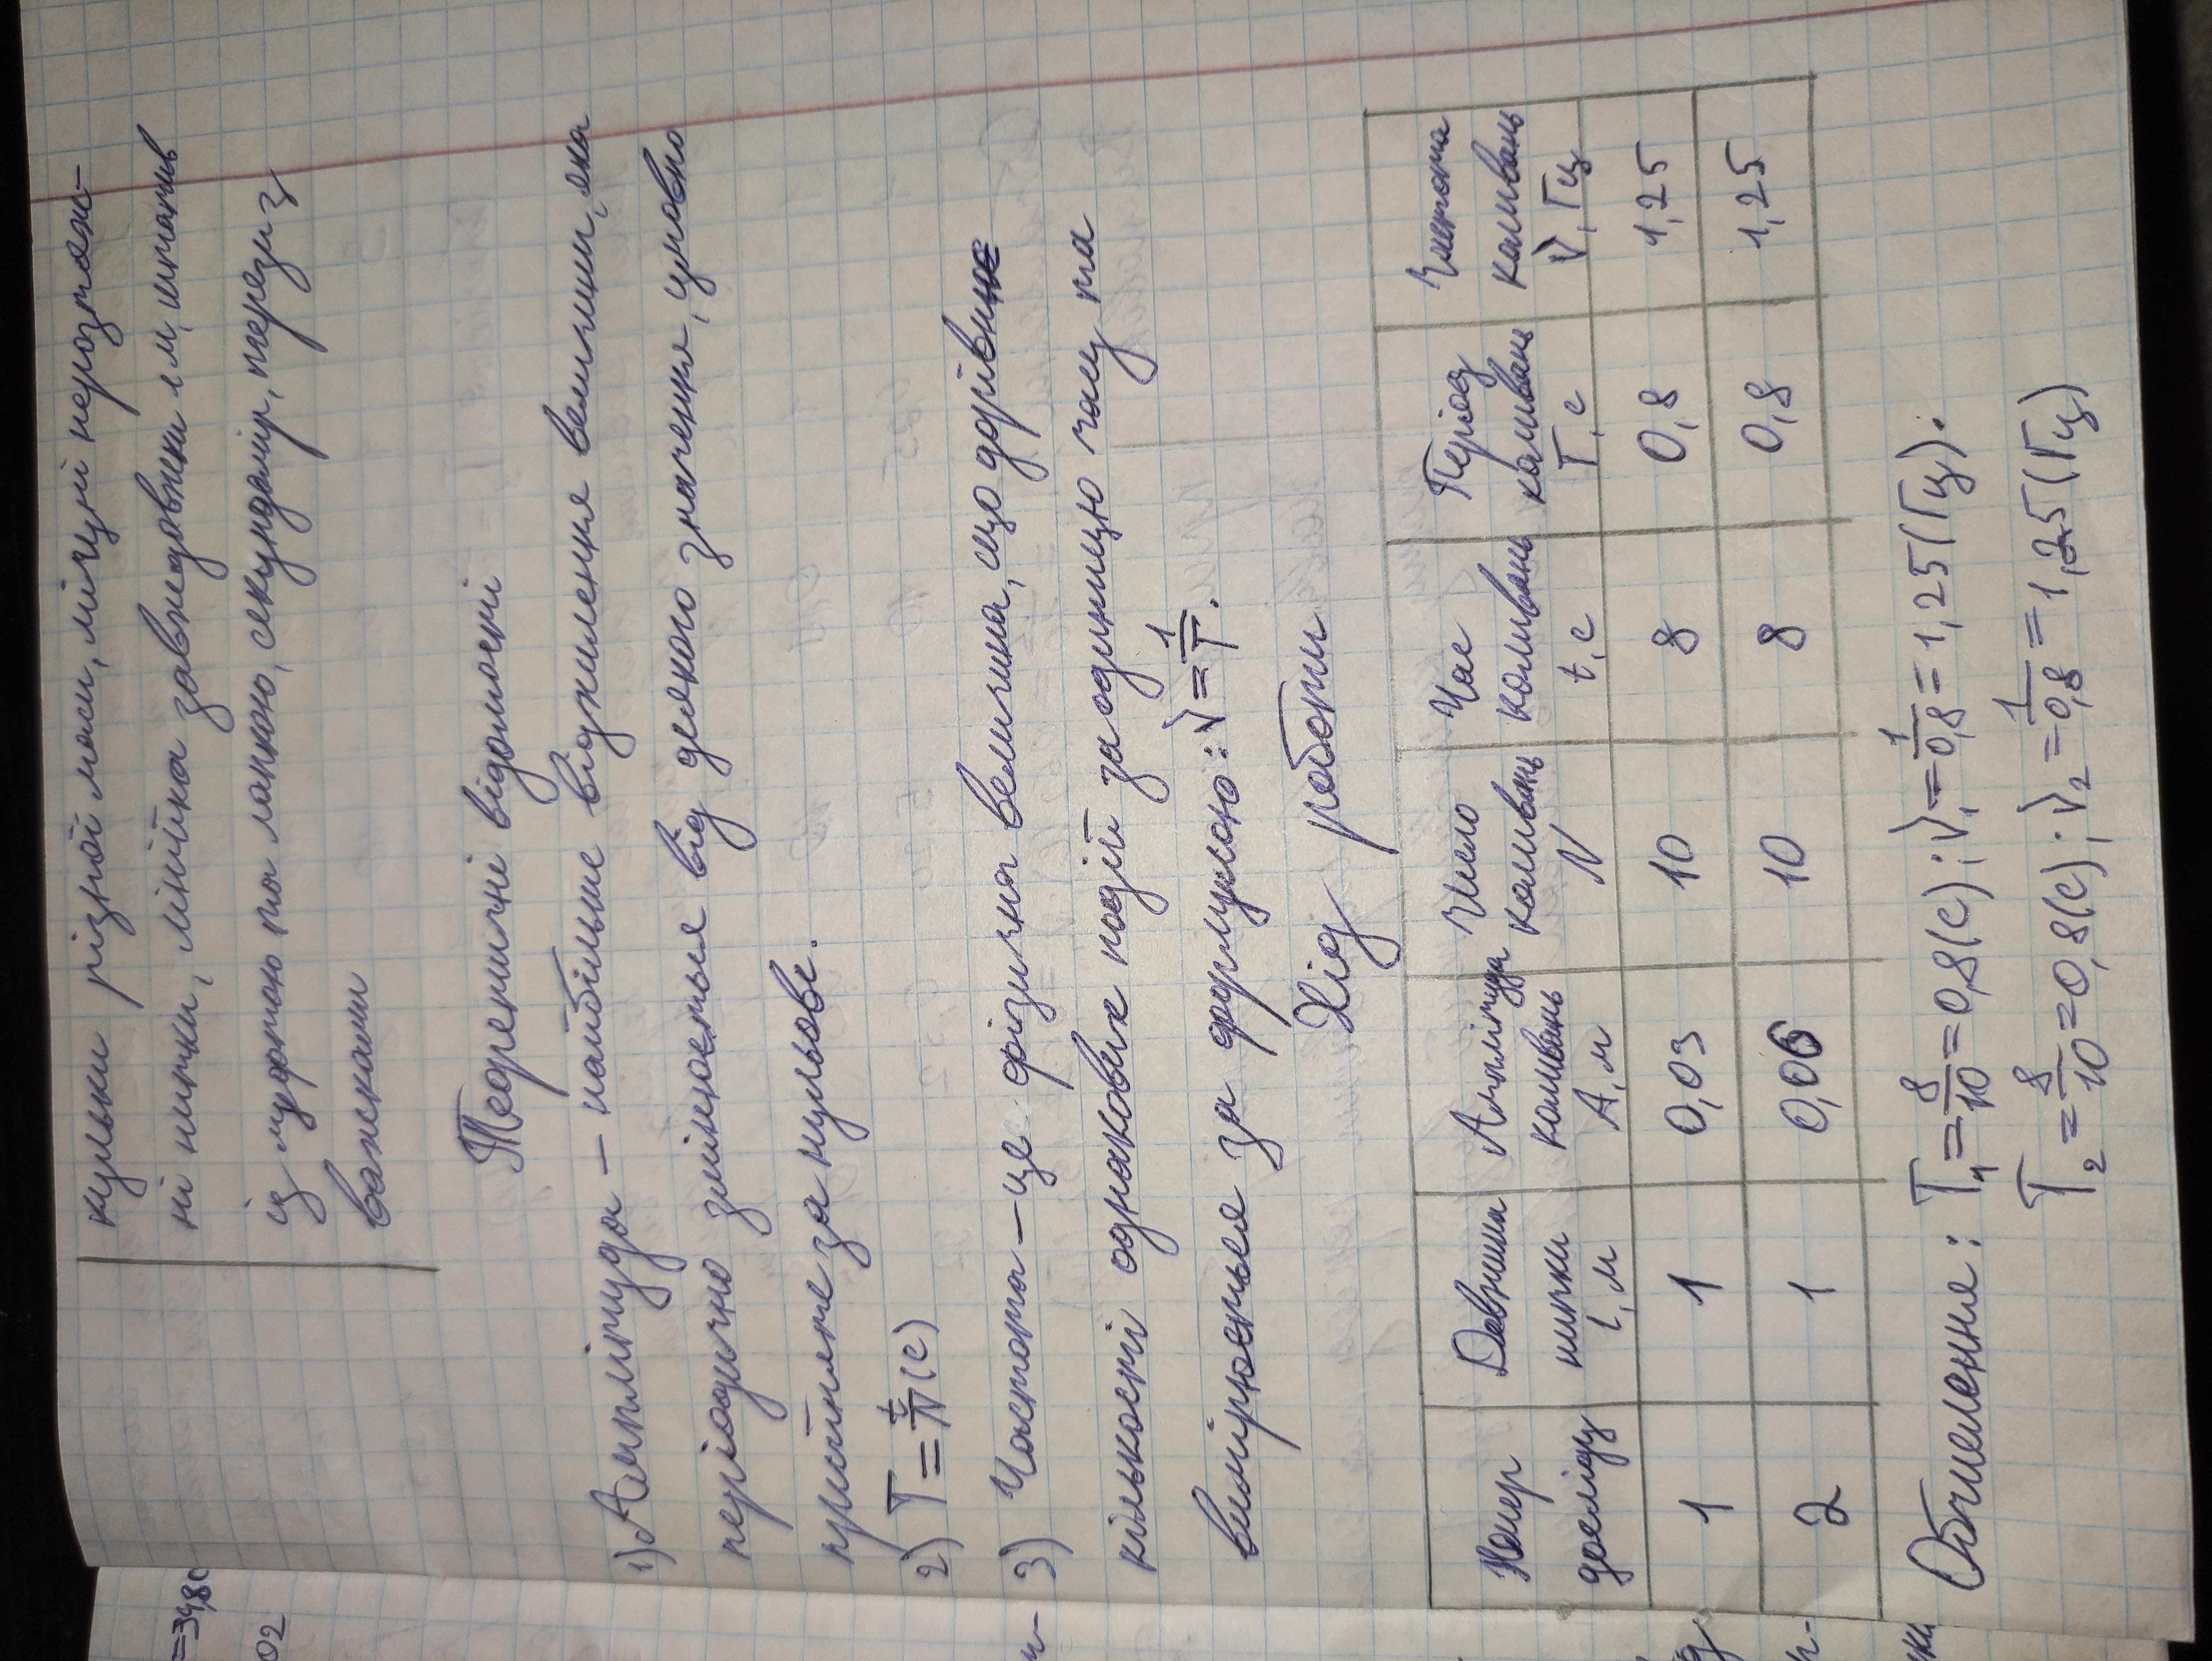 кульки різної маси, міцні нерозтяж-
ні нитки, лінійка завдовжки 1 м, штатив
із муфтою та лапкою, секундомір, терези з
важками
Теоретичні відомості
1) Амплітуда – найбільше відхилення величини, яка
періодично змінюється від деякого значення, умовно
прийняте за нульове.
2) T = t/N (с)
3) Частота – це фізична величина, що дорівню
кількості однакових подій за одиницю часу та
вимірюється за формулою: ν = 1/T.
Хід роботи
Номер досліду | Довжина нитки l, м | Амплітуда коливань A, м | Число коливань N | Час коливань t, с | Період коливань T, с | Частота коливань ν, Гц
1 | 1 | 0,03 | 10 | 8 | 0,8 | 1,25
2 | 1 | 0,06 | 10 | 8 | 0,8 | 1,25
Обчислення: T₁ = 8/10 = 0,8 (с); ν₁ = 1/0,8 = 1,25 (Гц).
T₂ = 8/10 = 0,8 (с); ν₂ = 1/0,8 = 1,25 (Гц)
=34,8
02